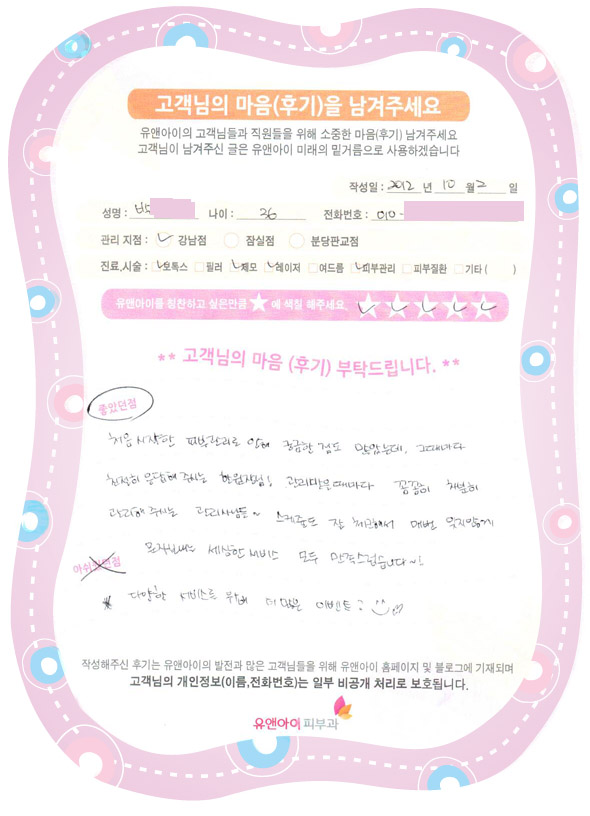 고객님의 마음(후기)을 남겨주세요
유앤아이의 고객님들과 직원들을 위해 소중한 마음(후기) 남겨주세요
고객님이 남겨주신 글은 유앤아이 미래의 밑거름으로 사용하겠습니다
작성일 : 2012 년 10 월 2 일
성명 : 박 나이 : 36 전화번호 : 010-
관리 지점 : 강남점 잠실점 분당판교점
진료,시술 : 보톡스 필러 제모 레이저 여드름 피부관리 피부질환 기타 ( )
유앤아이를 칭찬하고 싶은만큼 ★ 에 색칠 해주세요
** 고객님의 마음 (후기) 부탁드립니다. **
좋았던점
처음 시작한 피부관리로 인해 궁금한 점도 많았는데, 그때마다
친절히 응답해 주시는 원장님! 관리받을때마다 꼼꼼히 차분히
관리해 주시는 관리사님들~ 스케쥴도 잘 체크해서 매번 잊지않게
문자보내는 세심한 서비스 모두 만족스럽습니다~!
아쉬웠던점
* 다양한 서비스를 위해 더 많은 이벤트 :
작성해주신 후기는 유앤아이의 발전과 많은 고객님들을 위해 유앤아이 홈페이지 및 블로그에 기재되며
고객님의 개인정보(이름,전화번호)는 일부 비공개 처리로 보호됩니다.
유앤아이피부과